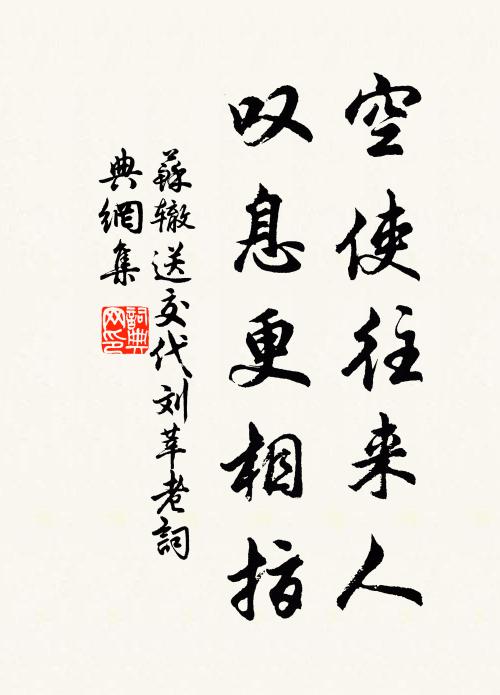 空使往来人
叹息更相指
蘇辙送交代刘莘老詞
典網集
詞典
网印